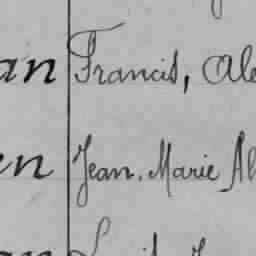 an Francis, Ale
en Jean. Marie Al